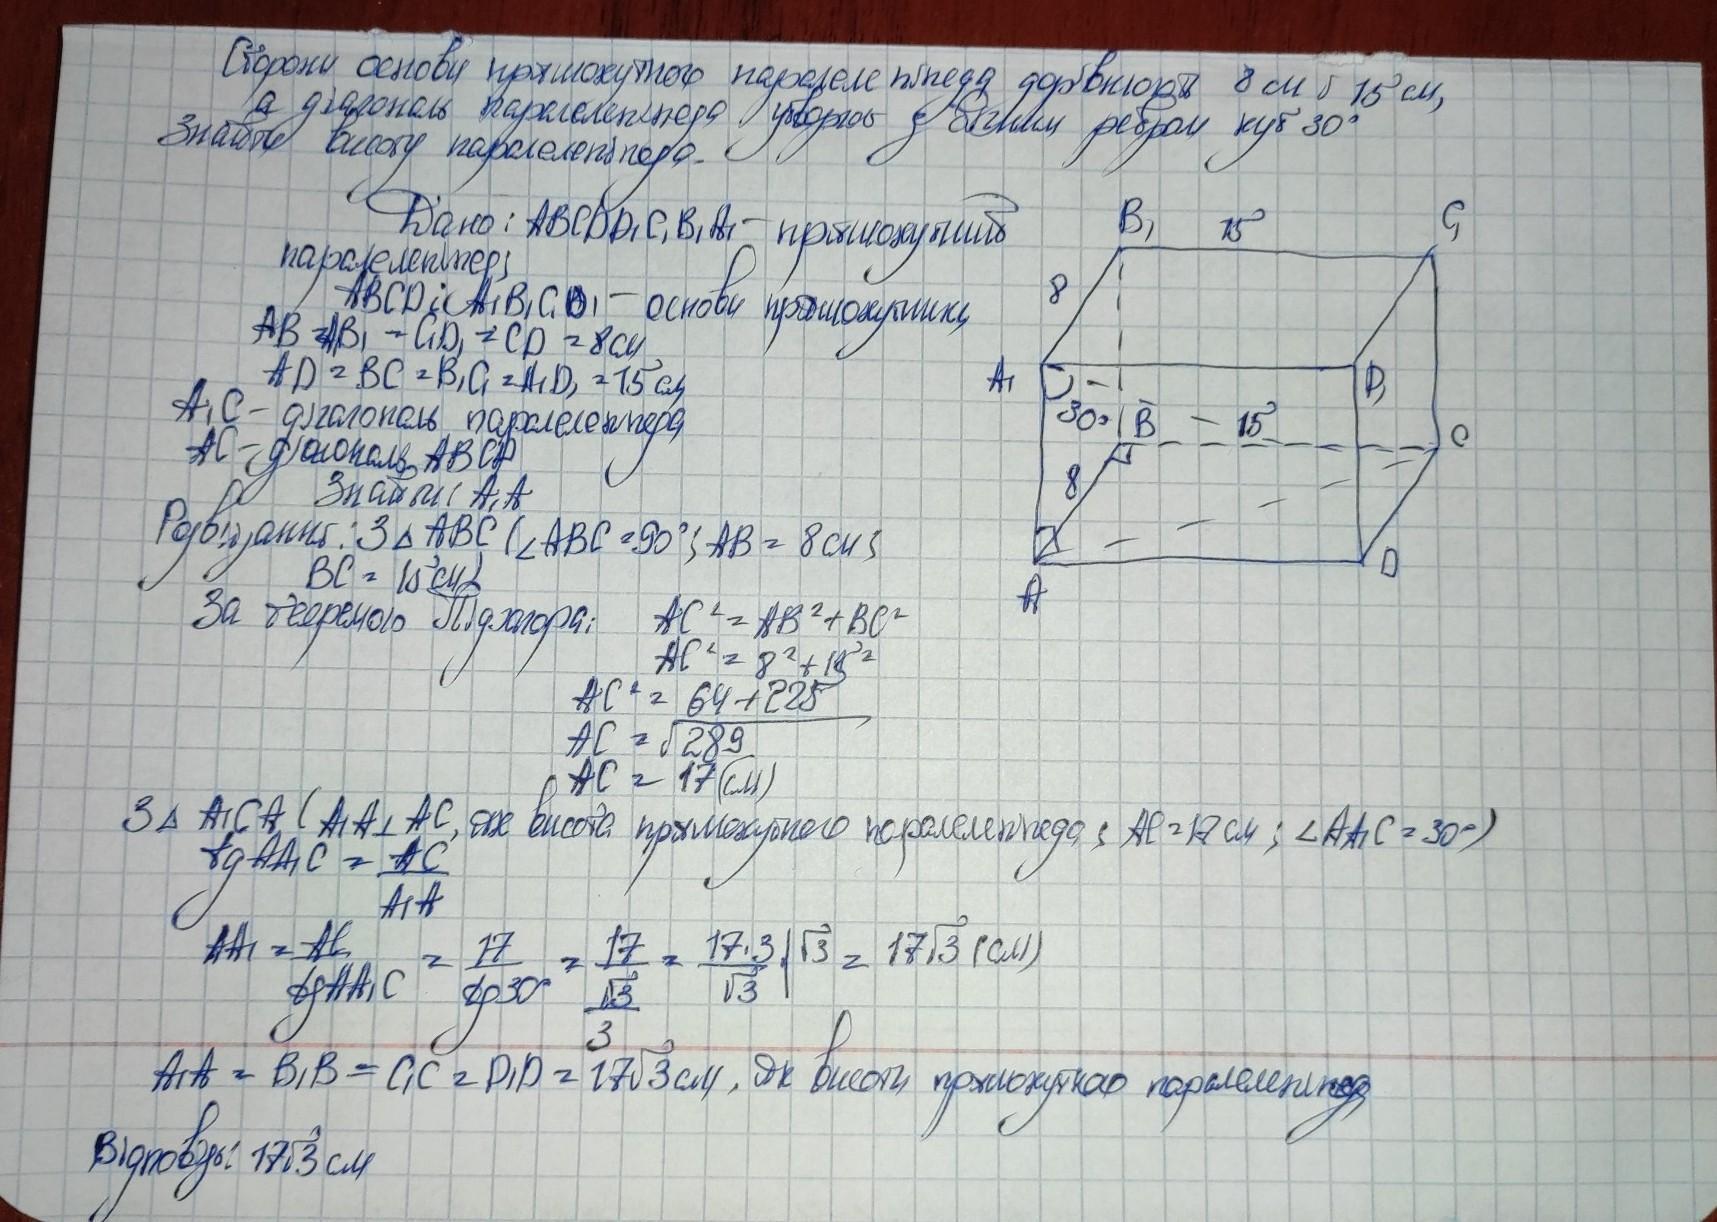 Сторони основи прямокутного паралелепіпеда дорівнюють 8 см і 15 см,
а діагональ паралелепіпеда утворює з бічним ребром кут 30°
Знайти висоту паралелепіпеда.
Дано: ABCDD₁C₁B₁A₁ – прямокутний
паралелепіпед;
ABCD i A₁B₁C₁D₁ – основи прямокутники
AB = AB₁ = C₁D₁ = CD = 8 см
AD = BC = B₁C₁ = A₁D₁ = 15 см
A₁C – діагональ паралелепіпеда
AC – діагональ ABCD
Знайти: A₁A
Розв'язання: З △ ABC (∠ABC = 90°; AB = 8 см;
BC = 15 см)
За теоремою Піфагора: AC² = AB² + BC²
AC² = 8² + 15²
AC² = 64 + 225
AC = √289
AC = 17 (см)
З △ A₁CA (A₁A ⊥ AC, як висота прямокутного паралелепіпеда; AC = 17 см; ∠AA₁C = 30°)
tgAA₁C = AC/A₁A
AA₁ = AC/tgAA₁C = 17/tg30° = 17/(√3/3) = 17·3/√3 | √3 = 17√3 (см)
A₁A = B₁B = C₁C = D₁D = 17√3 см, як висоти прямокутного паралелепіпеда
Відповідь: 17√3 см
B₁ 15 C₁
8
A₁ D₁
30° B 15 C
8
A D